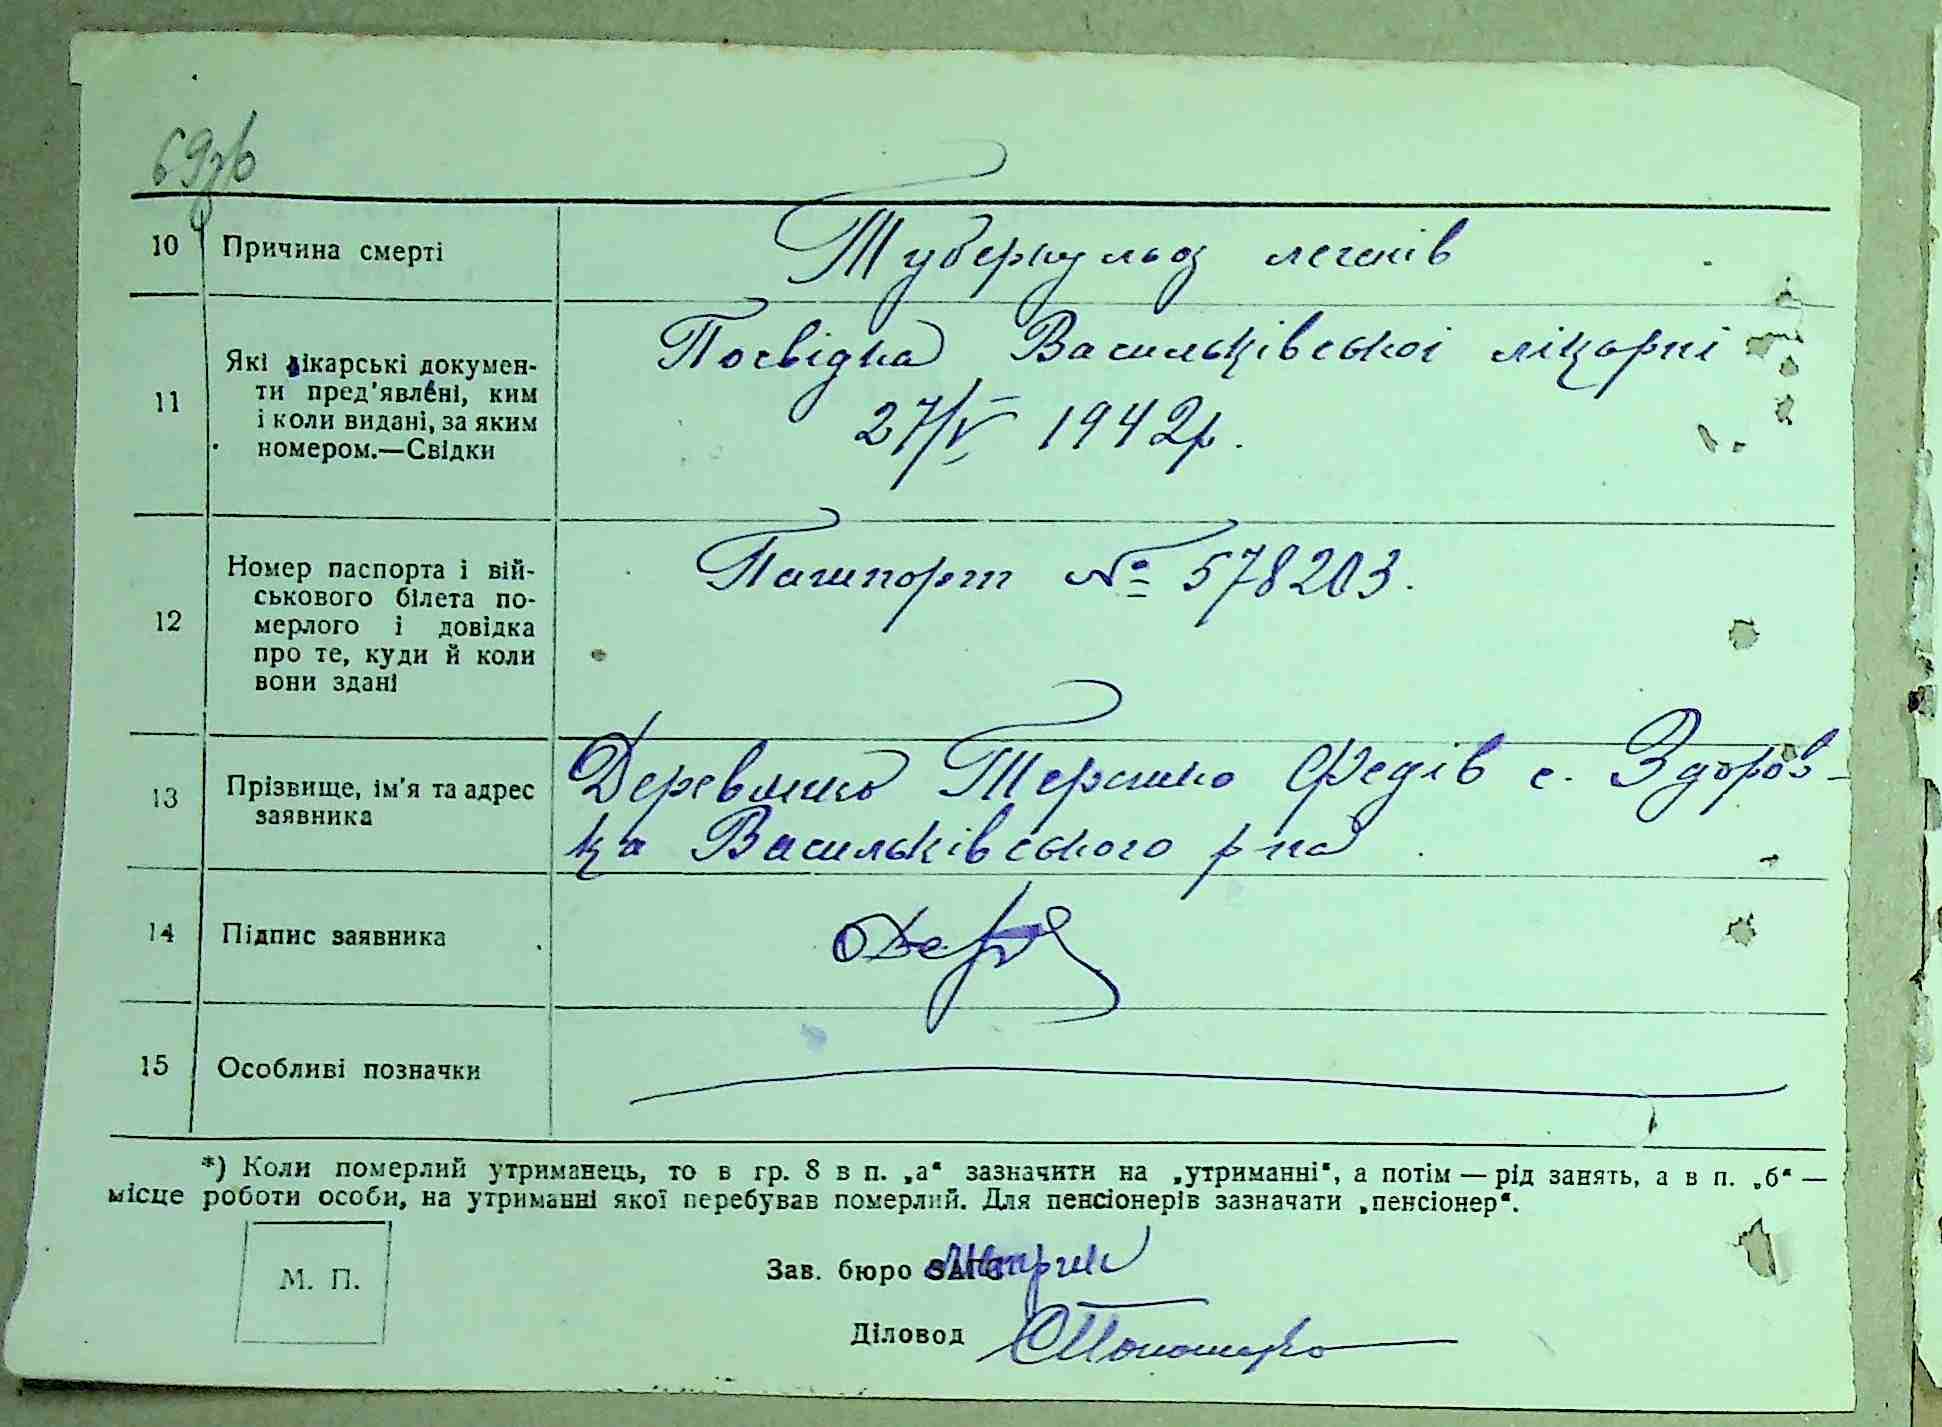 69зв
10 Причина смерті Туберкульоз легенів
11 Які лікарські докумен-
ти пред’явлені, ким
і коли видані, за яким
номером.—Свідки
Посвідка Васильківської лікарні
27/V 1942р.
12 Номер паспорта і вій-
ськового білета по-
мерлого і довідка
про те, куди й коли
вони здані
Пашпорт № 578203.
13 Прізвище, ім’я та адрес
заявника
Федів с. Здоров-
ка Васильківського р-на
14 Підпис заявника
15 Особливі позначки
*) Коли померлий утриманець, то в гр. 8 в п. „а“ зазначити на „утриманні“, а потім — рід занять, а в п. „б“ —
місце роботи особи, на утриманні якої перебував померлий. Для пенсіонерів зазначати „пенсіонер“.
М. П.
Зав. бюро ЗАГС Метрик
Діловод